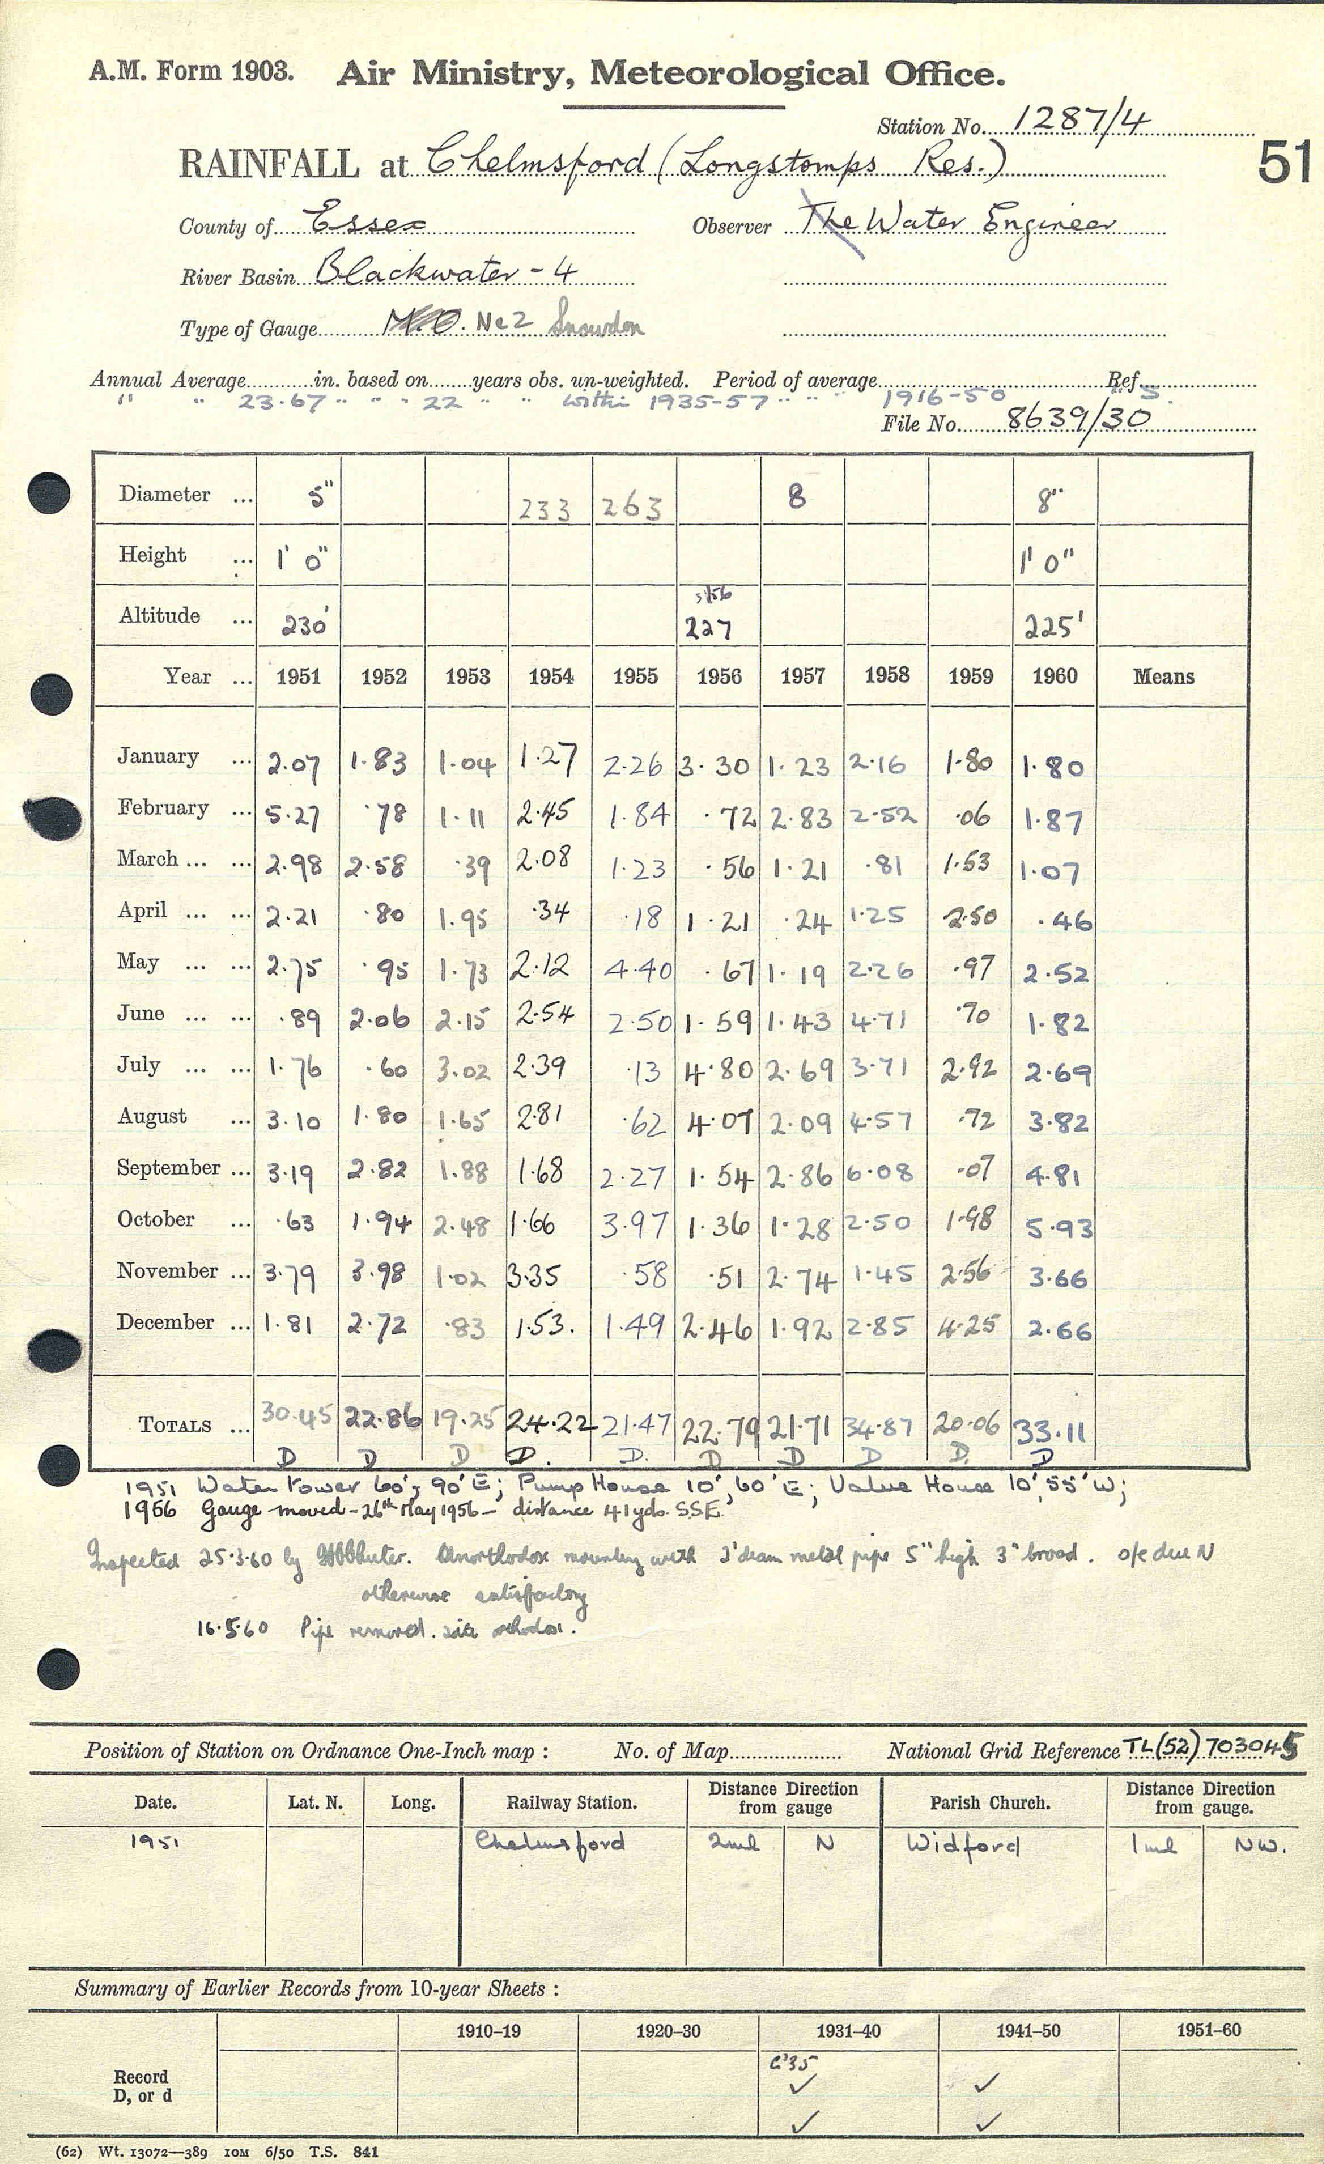 A.M. Form 1903. Air Ministry, Meteorological Office.
Station No. 1287/4
51
RAINFALL at Chelmsford (Longstomps Res.)
County of Essex Observer The Water Engineer
River Basin Blackwater - 4
Type of Gauge M.O. No2 Snowdon
Annual Average in. based on years obs. un-weighted. Period of average Ref S.
" " 23.67 " " " 22 " " within 1935-57 " " " 1916-50
File No. 8639/30
Diameter ... 5" 233 263 8 8"
Height ... 1' 0" 1' 0"
Altitude ... 230' 227 225'
Year ... 1951 1952 1953 1954 1955 1956 1957 1958 1959 1960 Means
January ... 2.07 1.83 1.04 1.27 2.26 3.30 1.23 2.16 1.80 1.80
February ... 5.27 .78 1.11 2.45 1.84 .72 2.83 2.52 .06 1.87
March ... ... 2.98 2.58 .39 2.08 1.23 .56 1.21 .81 1.53 1.07
April ... ... 2.21 .80 1.95 .34 .18 1.21 .24 1.25 2.50 .46
May ... ... 2.75 .95 1.73 2.12 4.40 .67 1.19 2.26 .97 2.52
June ... ... .89 2.06 2.15 2.54 2.50 1.59 1.43 4.71 .70 1.82
July ... ... 1.76 .60 3.02 2.39 .13 4.80 2.69 3.71 2.92 2.69
August ... 3.10 1.80 1.65 2.81 .62 4.07 2.09 4.57 .72 3.82
September ... 3.19 2.82 1.88 1.68 2.27 1.54 2.86 6.08 .07 4.81
October ... .63 1.94 2.48 1.66 3.97 1.36 1.28 2.50 1.98 5.93
November ... 3.79 3.98 1.02 3.35 .58 .51 2.74 1.45 2.56 3.66
December ... 1.81 2.72 .83 1.53. 1.49 2.46 1.92 2.85 4.25 2.66
TOTALS ... 30.45 22.86 19.25 24.22 21.47 22.79 21.71 34.87 20.06 33.11
D D D D. D. D D D D. D
1951 Water tower 60', 90' E; Pump House 10', 60' E; Valve House 10', 55' W;
1956 Gauge moved - 26th May 1956 - distance 41 yds. SSE
Inspected 25.3.60 by Unorthodox mounting with 2' diam metal pipe 5" high 3" broad. o/c due N
otherwise satisfactory
16.5.60 Pipe removed. site orthodox.
Position of Station on Ordnance One-Inch map : No. of Map National Grid Reference TL(52) 703045
Date. Lat. N. Long. Railway Station. Distance Direction from gauge Parish Church. Distance Direction from gauge.
1951 Chelmsford 2ml N Widford 1ml NW.
Summary of Earlier Records from 10-year Sheets :
1910-19 1920-30 1931-40 1941-50 1951-60
Record D, or d C'35 ✓ ✓
✓ ✓
(62) Wt. 13072—389 10M 6/50 T.S. 841